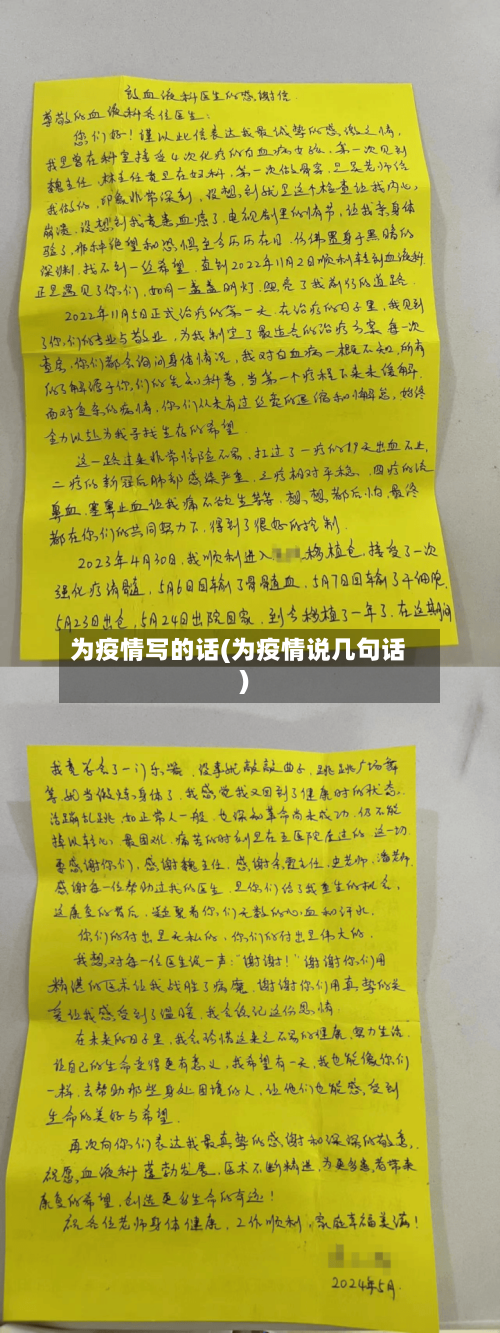 致血液科医生的感谢信
尊敬的血液科各位医生:
您们好!谨以此信表达我最诚挚的感激之情,
我是曾在科室接受4次化疗的白血病女孩,第一次见到
魏主任,林主任竟是在妇科,第一次做骨穿,是吴老师给
我做的,印象非常深刻,没想到就是这个检查让我内心
崩溃,没想到我竟患血癌了,电视剧里的情节,让我亲身体
验了,那种绝望和恐惧至今历历在目,仿佛置身于黑暗的
深渊,找不到一丝希望,直到2022年11月2日顺利转到血液科,
正是遇见了你们,如同一盏盏明灯,照亮了我前行的道路。
2022年11月5日正式治疗的第一天,在治疗的日子里,我见到
了你们的专业与敬业,为我制定了最适合的治疗方案,每一次
查房,你们都会询问身体情况,我对白血病一概不知,所有
的了解源于你们的告知科普,当第一个疗程下来未缓解,
面对复杂的病情,你们从未有过丝毫的退缩和懈怠,始终
全力以赴为我寻找生存的希望。
这一路过来非常惊险不易,扛过了一疗的19天出血不止,
二疗的新冠后肺部感染严重,三疗相对平稳,四疗的流
鼻血,塞鼻止血让我痛不欲生等等,想想都后怕,最终
都在你们的共同努力下,得到了很好的控制。
2023年4月30日,我顺利进入 移植仓,接受了一次
强化疗清髓,5月6日回输了骨髓血,5月7日回输了干细胞,
5月23日出仓,5月24日出院回家,到今移植了一年了,在这期间
为疫情写的话(为疫情说几句话
)
我竟学会了一门乐器,没事就敲敲曲子,跳跳广场舞
等,就当做炼身体了,我感觉我又回到了健康时的状态,
活蹦乱跳,和正常人一般,也深知革命尚未成功,仍不能
掉以轻心,最困难,痛苦的时刻是在五医院度过的,这一切
要感谢你们,感谢魏主任,感谢 主任,史老师,潘老师,
感谢每一位帮助过我的医生,是你们给了我重生的机会,
这康复的背后,凝聚着你们无数的心血和汗水。
你们的付出是无私的,你们的付出是伟大的。
我想对每一位医生说一声:"谢谢!"谢谢你们用
精湛的医术让我战胜了病魔,谢谢你们用真挚的关
爱让我感受到了温暖,我会铭记这份恩情。
在未来的日子里,我会珍惜这来之不易的健康,努力生活,
让自己的生命变得更有意义,我希望有一天,我也能像你们
一样,去帮助那些身处困境的人,让他们也能感受到
生命的美好与希望。
再次向你们表达我最真挚的感谢和深深的敬意,
祝愿血液科蓬勃发展,医术不断精进,为更多患者带来
康复的希望,创造更多生命的奇迹!
祝各位老师身体健康,工作顺利,家庭幸福美满!
2024年5月